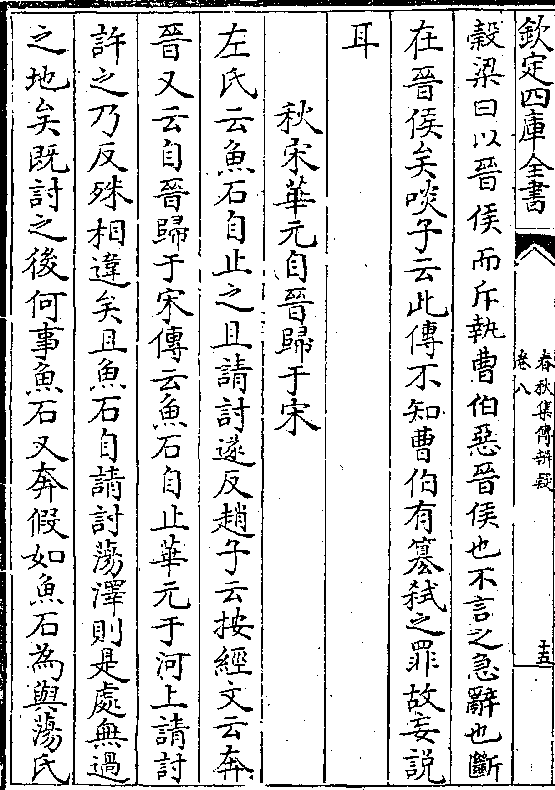 欽定四庫全書
春秋集傳辨疑
卷八
十五
穀梁曰以晉侯而斥執曹伯惡晉侯也不言之急辭也斷
在晉侯矣啖子云此傳不知曹伯有簒弑之罪故妄説
耳
秋宋華元自晉歸于宋
左氏云魚石自止之且請討遂反趙子云按經文云奔
晉又云自晉歸于宋傳云魚石自止華元于河上請討
許之乃反殊相違矣且魚石自請討蕩澤則是處無過
之地矣既討之後何事魚石又奔假如魚石為與蕩氏